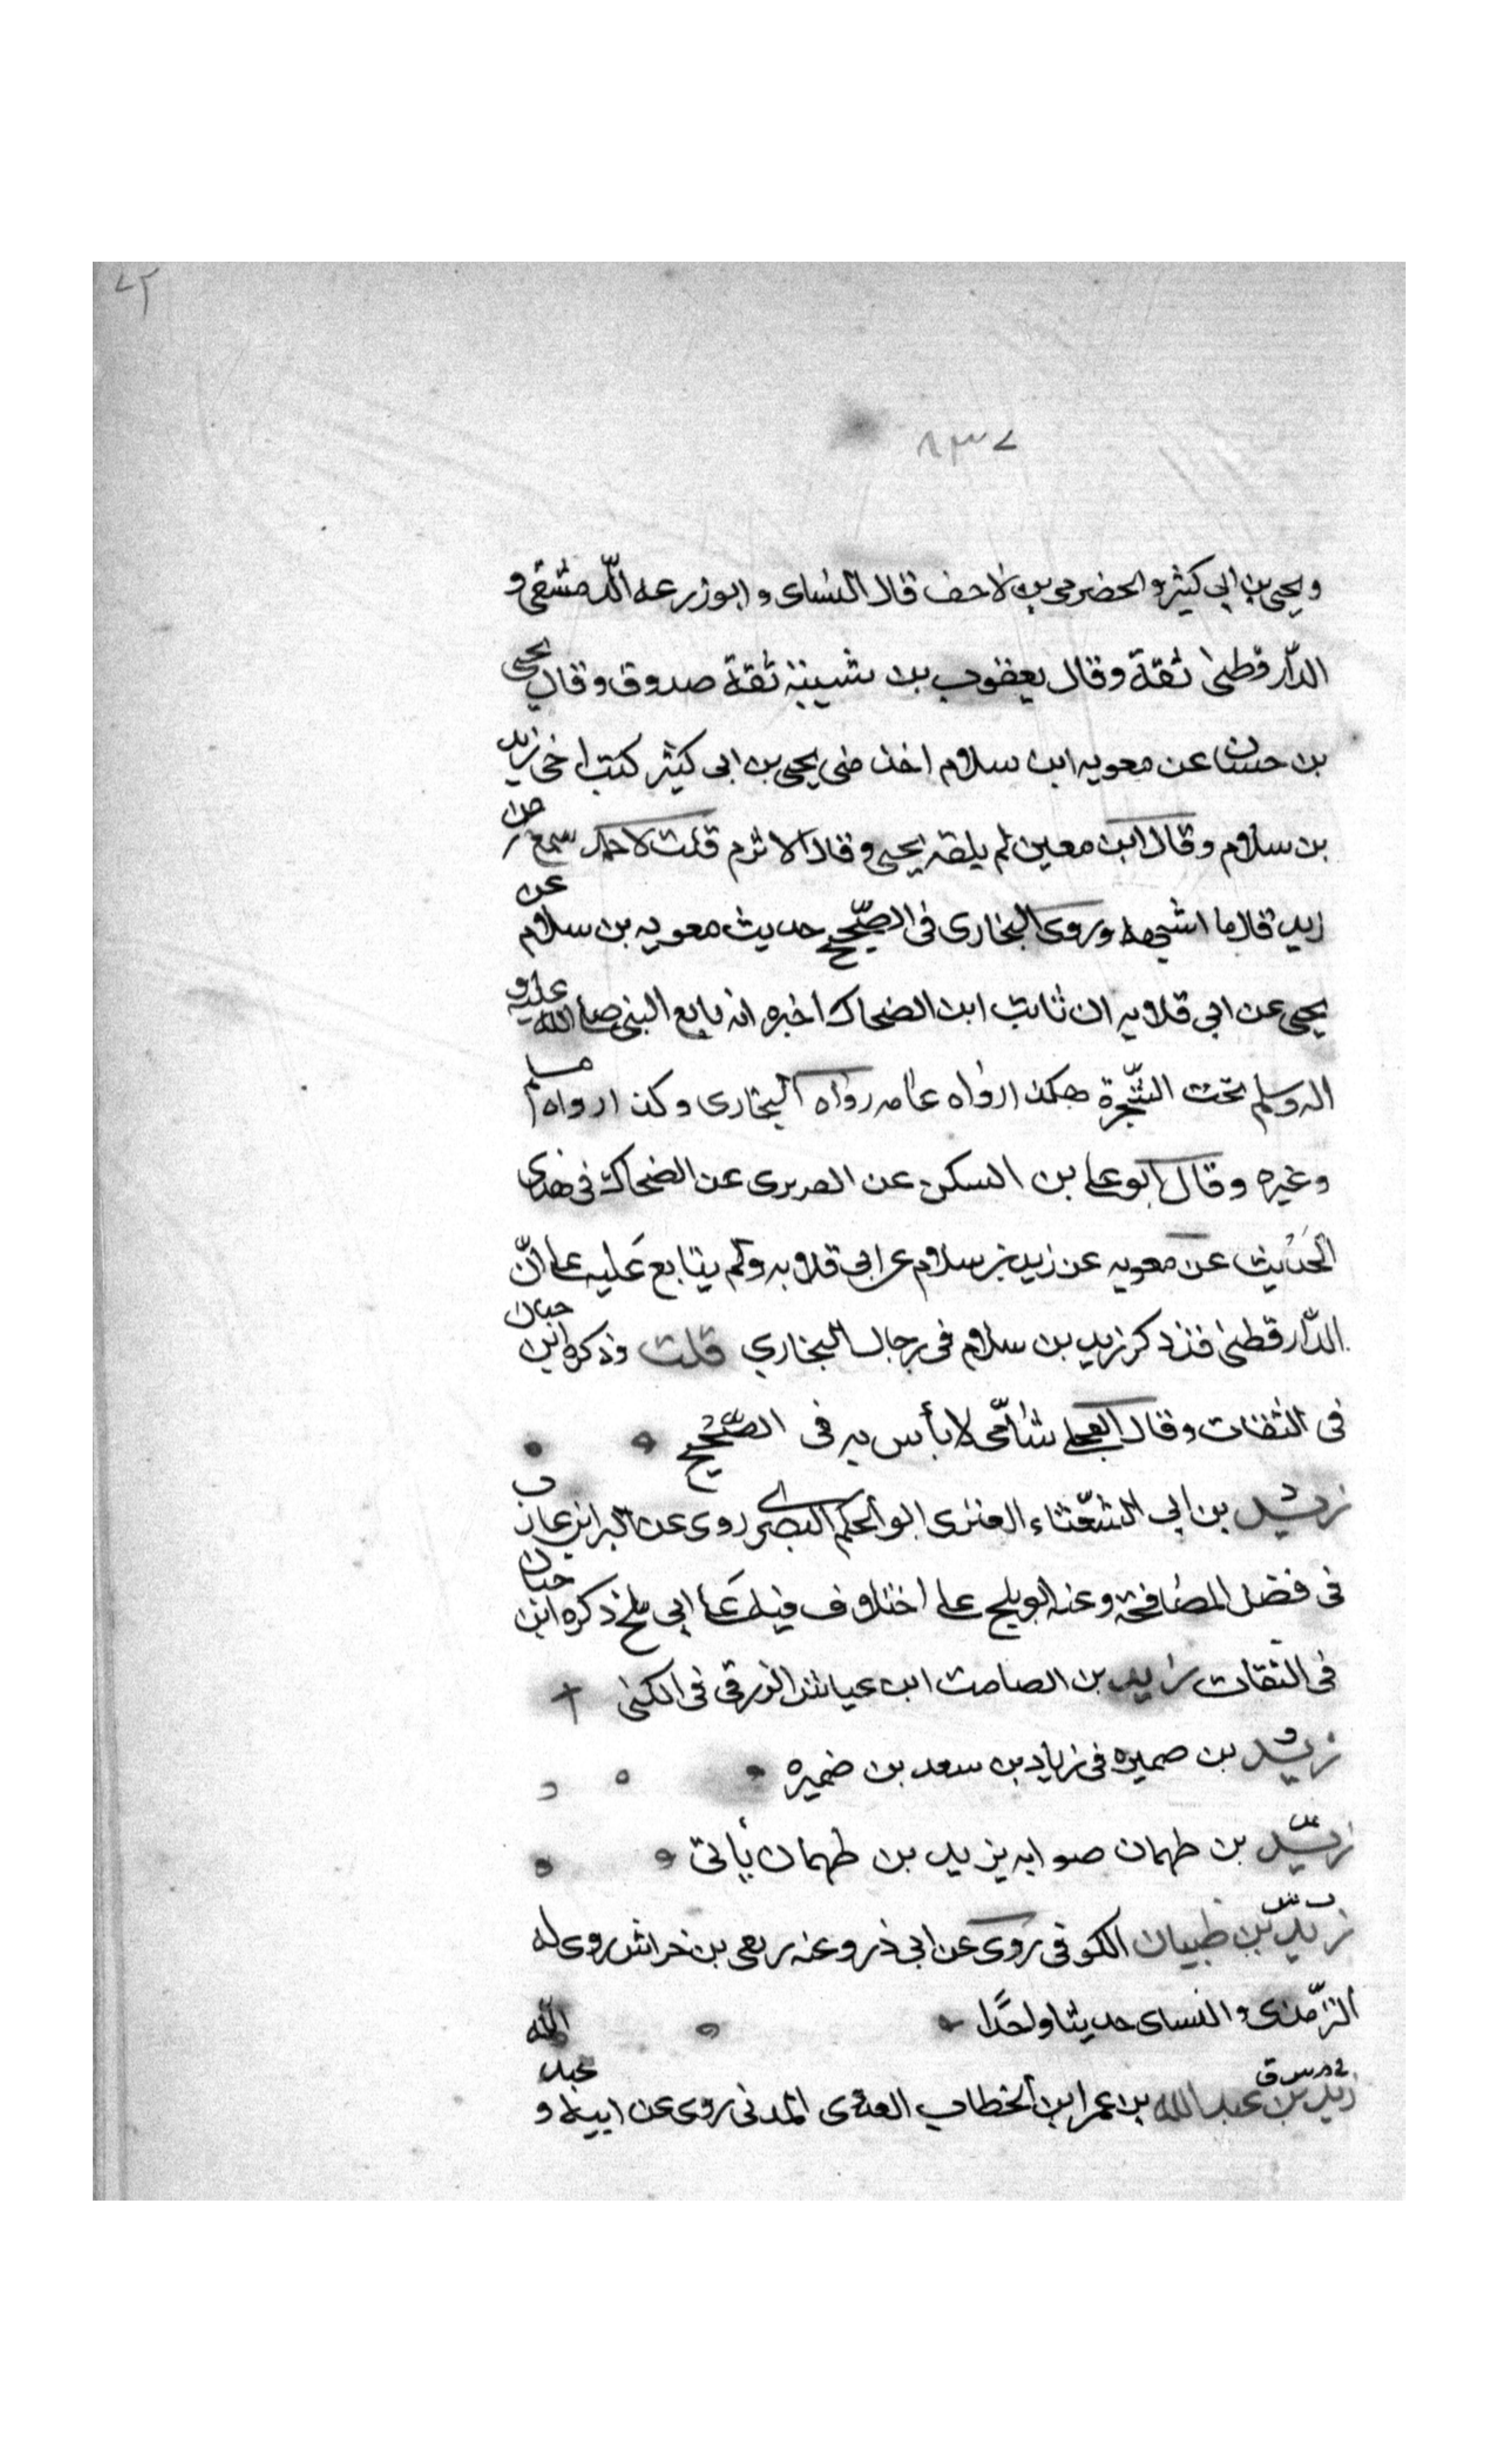 ٧٢
٨٣٧
ويحيى بن ابي كثير والحضرمى بن لاحف قال النساى و ابو زرعه الدّمشقى و
الدّارقطنى ثقة وقال يعقوب بن شيبة ثقة صدوق وقال يحيى
بن حسان عن معويه ابن سلام اخذ منى يحيى بن ابى كثير كتب اخى زيد
بن سلام وقال ابن معين لم يلقه يحيى وقال الاثرم قلت لاحمد سمع من
زيد قال ما اشبهه وروى البخارى فى الصّحيح حديث معويه بن سلام عن
يحيى عن ابى قلابه ان ثابت ابن الضحاك اخبره انه بايع النبى صلى الله عليه و
اله وسلم تحت الشّجرة هكذا رواه عامه رواه البخارى وكذا رواه مسلم
وغيره وقال ابو على بن السكن عن الفربرى عن الضحاك فى هذا
الحديث عن معويه عن زيد بن سلام عن ابى قلابه ولم يتابع عليه على انّ
الدّارقطنى قد ذكر زيد بن سلام فى رجال البخاري قلت وذكره ابن حبان
فى الثقات وقال العجلى شامّى لا بأس به فى الصّحيح
زيد بن ابى الشّعثاء العنزى ابو الحكم البصرى روى عن البرا بن عازب
فى فضل المصافحة وعنه ابو بلج على اختلاف فيه على ابى بلج ذكره ابن حبان
فى الثقات زيد بن الصامت ابن عياش الزرقى فى الكنى
زيد بن صميره فى زياد بن سعد بن ضميره
زيد بن طهمان صوابه يزيد بن طهمان يأتى
زيد بن ظبيان الكوفى روى عن ابى ذر وعنه ربعى بن خراش روى له
الترّمذى والنساى حديثا واحدًا
زيد بن عبد الله بن عمر ابن الخطاب العدوى المدنى روى عن ابيه و عبد الله